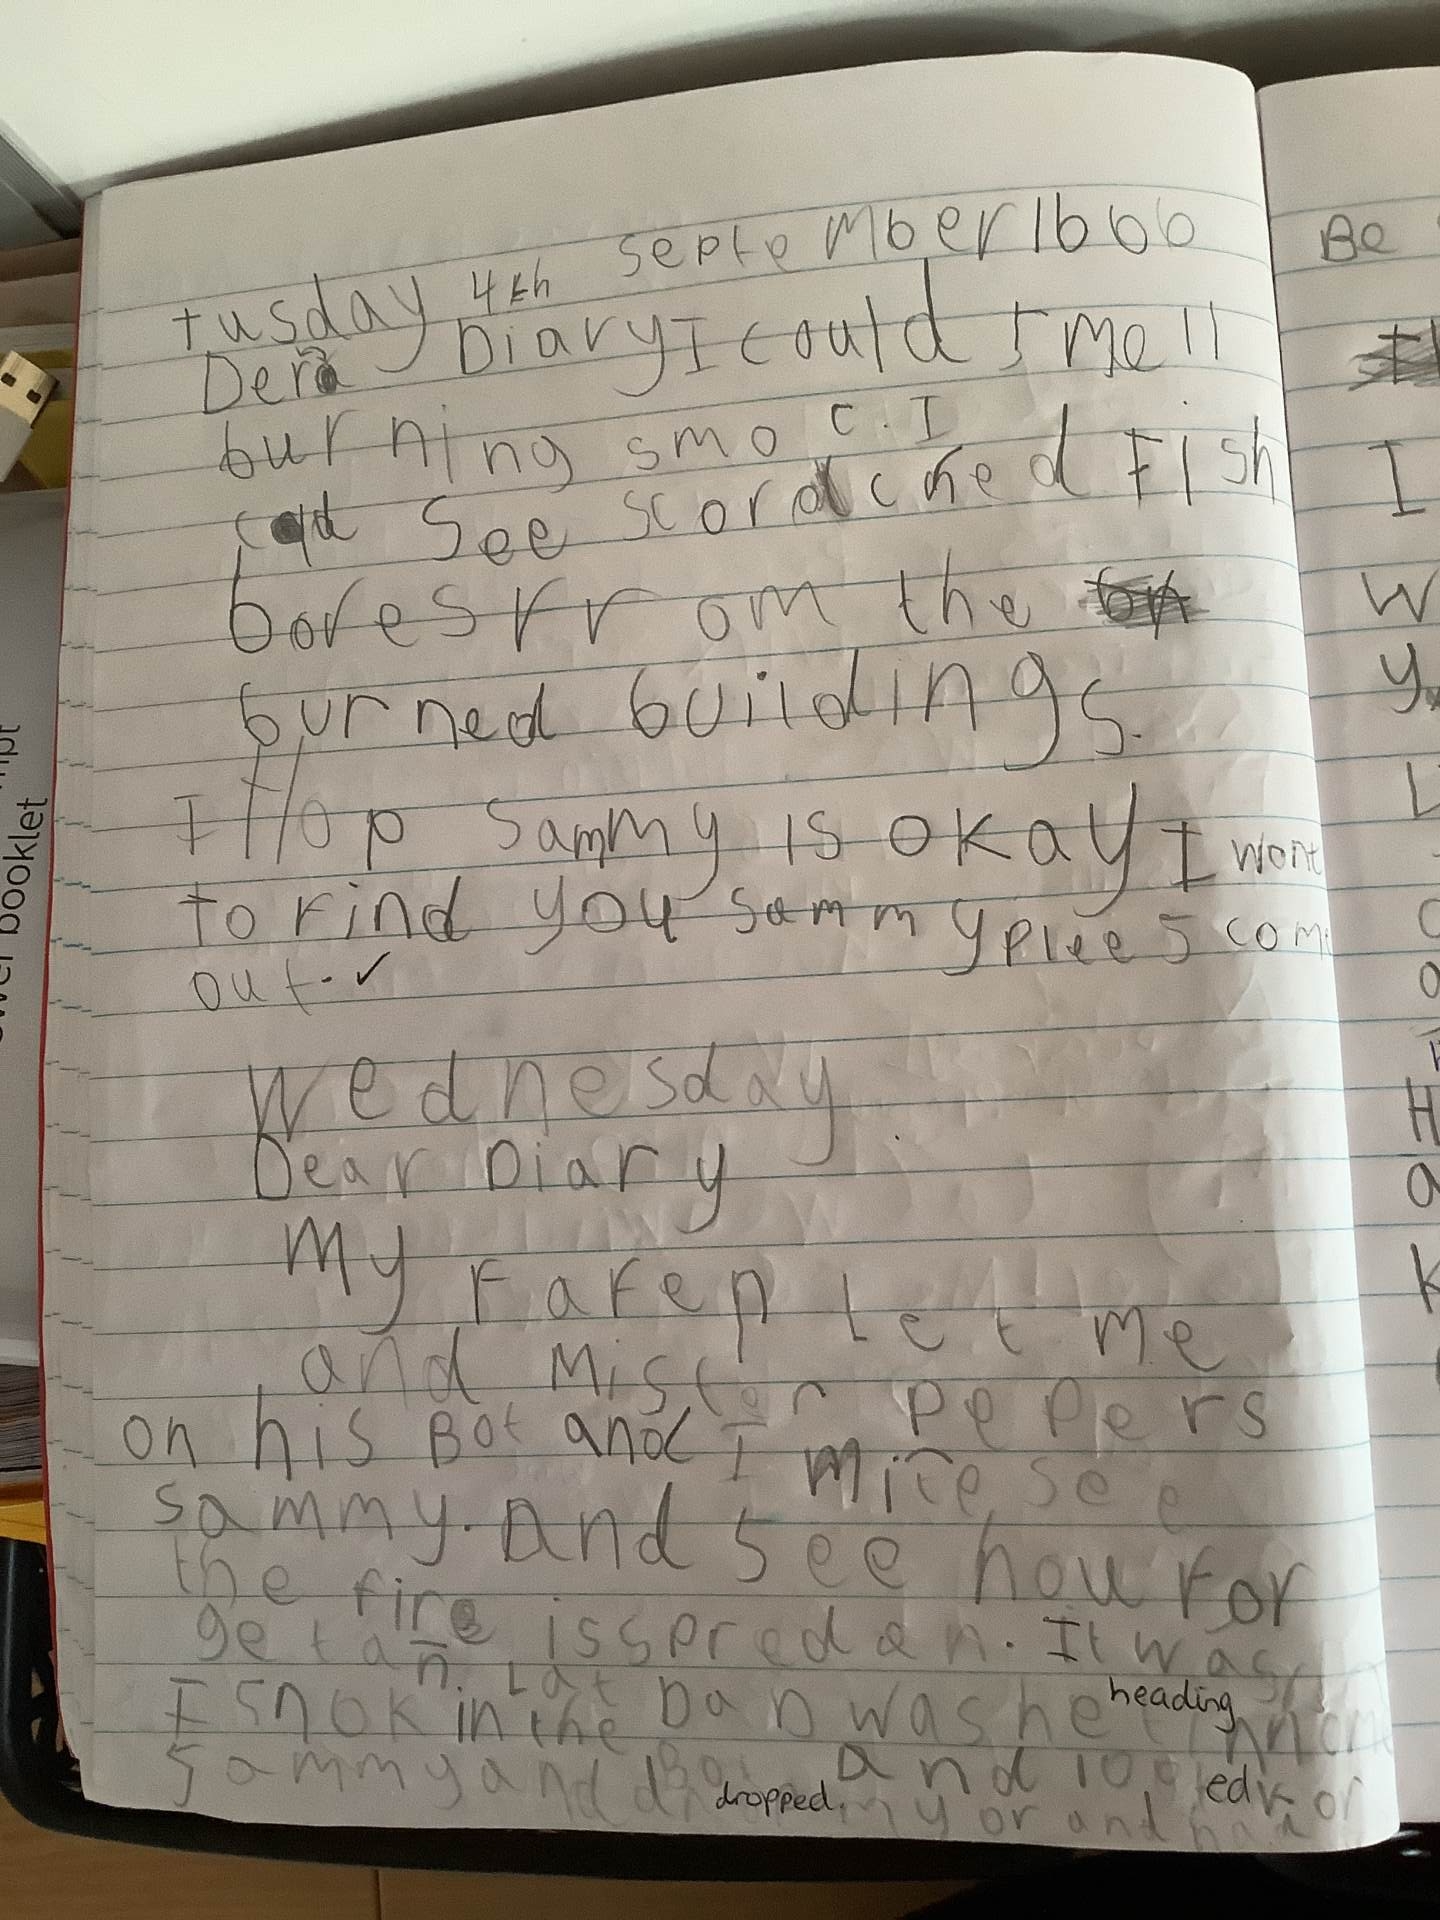 tusday 4th september 1666
Dera Diary I could smell
burning smoc. I
cad see scorached Fish
bores frr om the
burned buildings.
I Hop Sammy is okay I wont
to find you sammy plees com
out. ✓
Wednesday
Dear Diary
My Farfen Let me
and Mister pepers
on his Bot and I mite see
sammy. And see how For
the fire is spredan. It was
getan Lat
I snok in the was he heading
sammy and and
dropped. my or and
Be
I
W
y
L
H
a
K
booklet